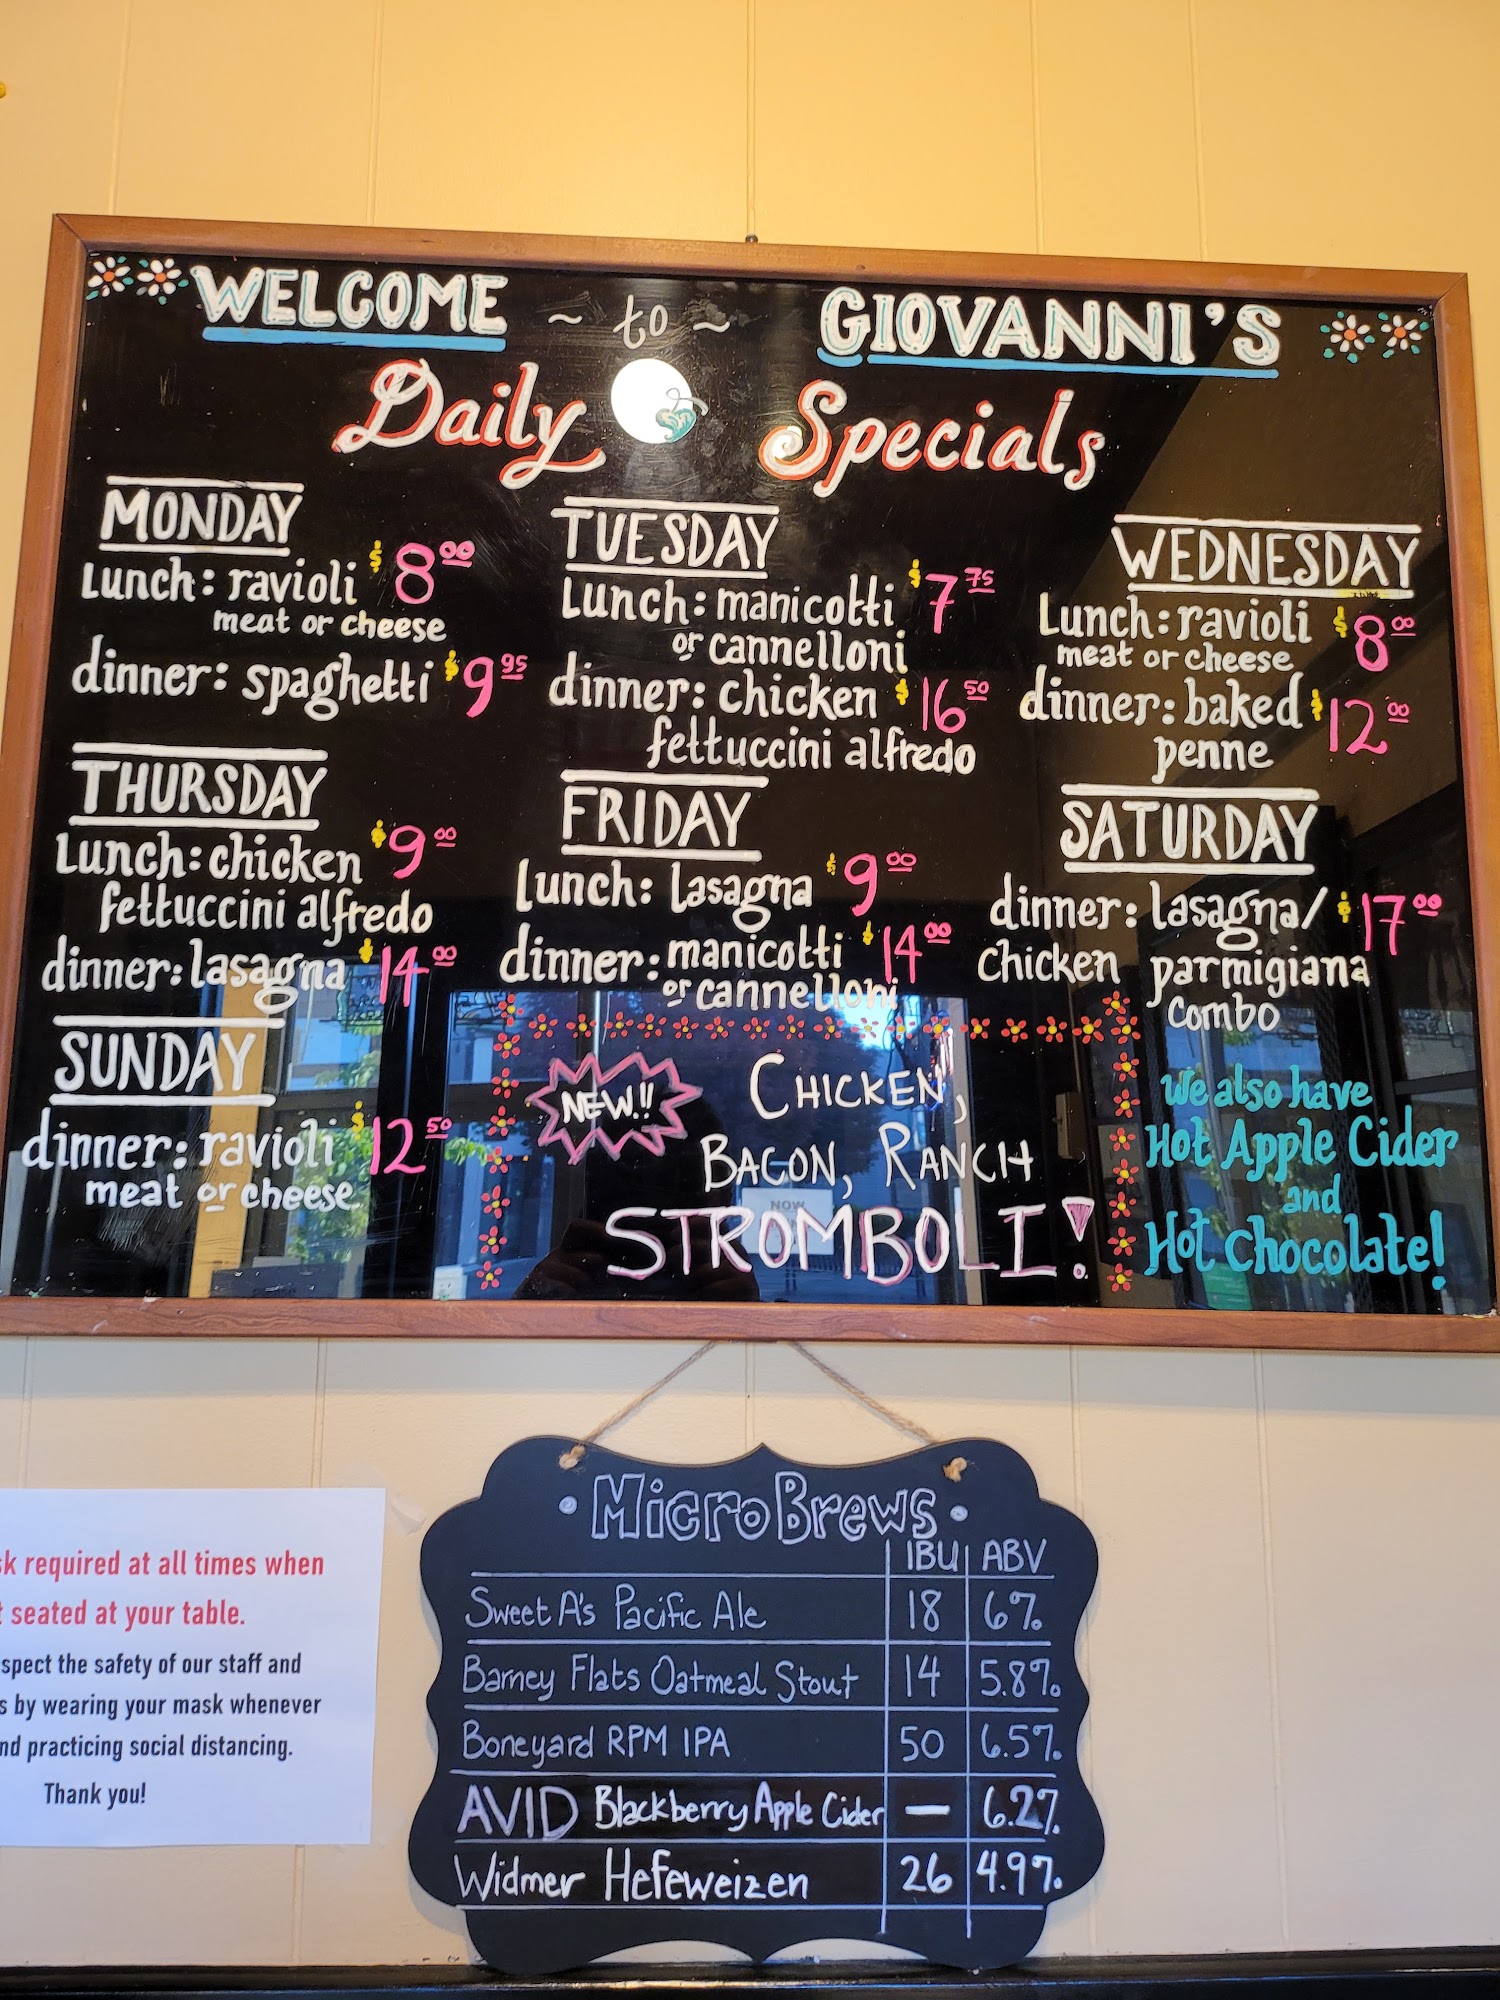 WELCOME ~ to ~ GIOVANNI'S
Daily Specials
MONDAY
Lunch: ravioli $8.00
meat or cheese
dinner: spaghetti $9.95
TUESDAY
Lunch: manicotti $7.75
or cannelloni
dinner: chicken $16.50
fettuccini alfredo
WEDNESDAY
Lunch: ravioli $8.00
meat or cheese
dinner: baked $12.00
penne
THURSDAY
Lunch: chicken $9.00
fettuccini alfredo
dinner: lasagna $14.00
FRIDAY
lunch: lasagna $9.00
dinner: manicotti $14.00
or cannelloni
SATURDAY
dinner: lasagna/ $17.00
chicken parmigiana
combo
SUNDAY
dinner: ravioli $12.50
meat or cheese
NEW!!
CHICKEN,
BACON, RANCH
STROMBOLI!
We also have
Hot Apple Cider
and
Hot Chocolate!
MicroBrews
IBU ABV
Sweet A's Pacific Ale 18 6%
Barney Flats Oatmeal Stout 14 5.8%
Boneyard RPM IPA 50 6.5%
AVID Blackberry Apple Cider — 6.2%
Widmer Hefeweizen 26 4.9%
required at all times when
seated at your table.
the safety of our staff and
by wearing your mask whenever
practicing social distancing.
Thank you!